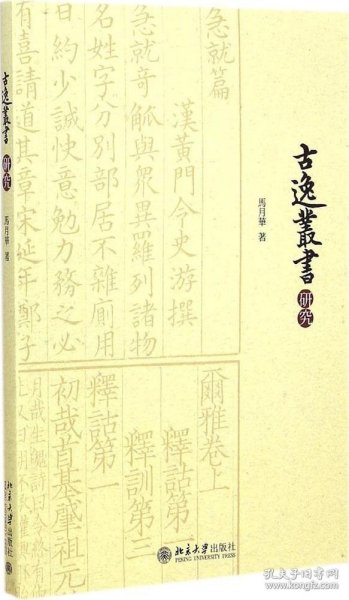 古逸叢書
研究
馬月華 著
古逸叢書
研究
馬月華 著
北京大學出版社
PEKING UNIVERSITY PRESS
北京大學出版社
急就篇
漢黃門令史游撰
急就奇觚與衆異羅列諸物
名姓字分別部居不雜廁用
日約少誠快意勉力務之必
有喜請道其章宋延年鄭子
爾雅卷上
釋詁第一
釋訓第三
釋詁第一
初哉首基肇祖元
孔夫子旧书网